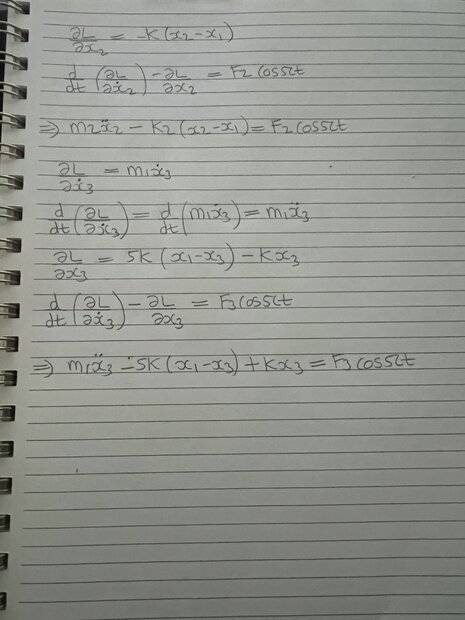 ∂L/∂x₂ = -K(x₂-x₁)
d/dt (∂L/∂ẋ₂) - ∂L/∂x₂ = F₂ cosΩt
⇒ m₂ẍ₂ - K₂(x₂-x₁) = F₂ cosΩt
∂L/∂ẋ₃ = m₁ẋ₃
d/dt (∂L/∂ẋ₃) = d/dt (m₁ẋ₃) = m₁ẍ₃
∂L/∂x₃ = 5K(x₁-x₃) - Kx₃
d/dt (∂L/∂ẋ₃) - ∂L/∂x₃ = F₃ cosΩt
⇒ m₁ẍ₃ - 5K(x₁-x₃) + Kx₃ = F₃ cosΩt